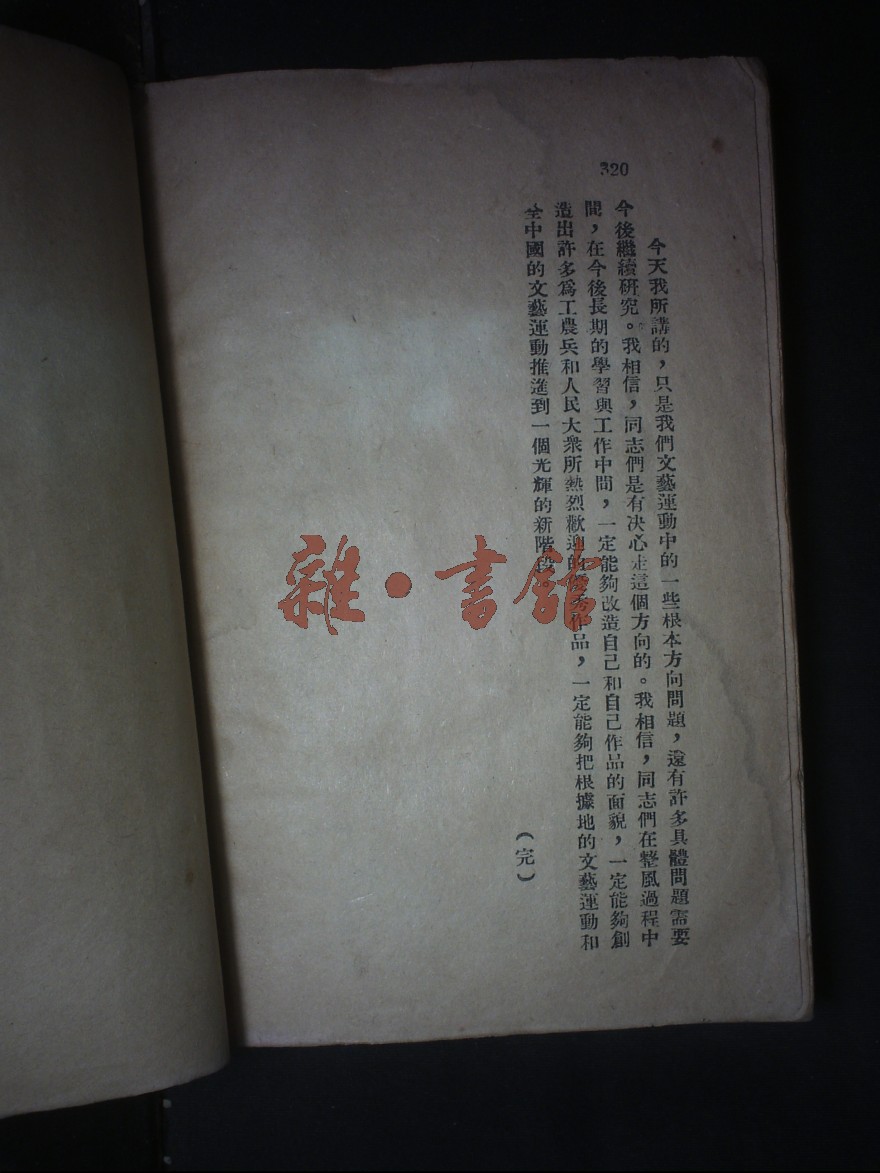 320
今天我所講的，只是我們文藝運動中的一些根本方向問題，還有許多具體問題需要
今後繼續研究。我相信，同志們是有決心走這個方向的。我相信，同志們在整風過程中
間，在今後長期的學習與工作中間，一定能夠改造自己和自己作品的面貌，一定能夠創
造出許多爲工農兵和人民大衆所熱烈歡迎的優秀作品，一定能夠把根據地的文藝運動和
全中國的文藝運動推進到一個光輝的新階段
（完）
雜·書館